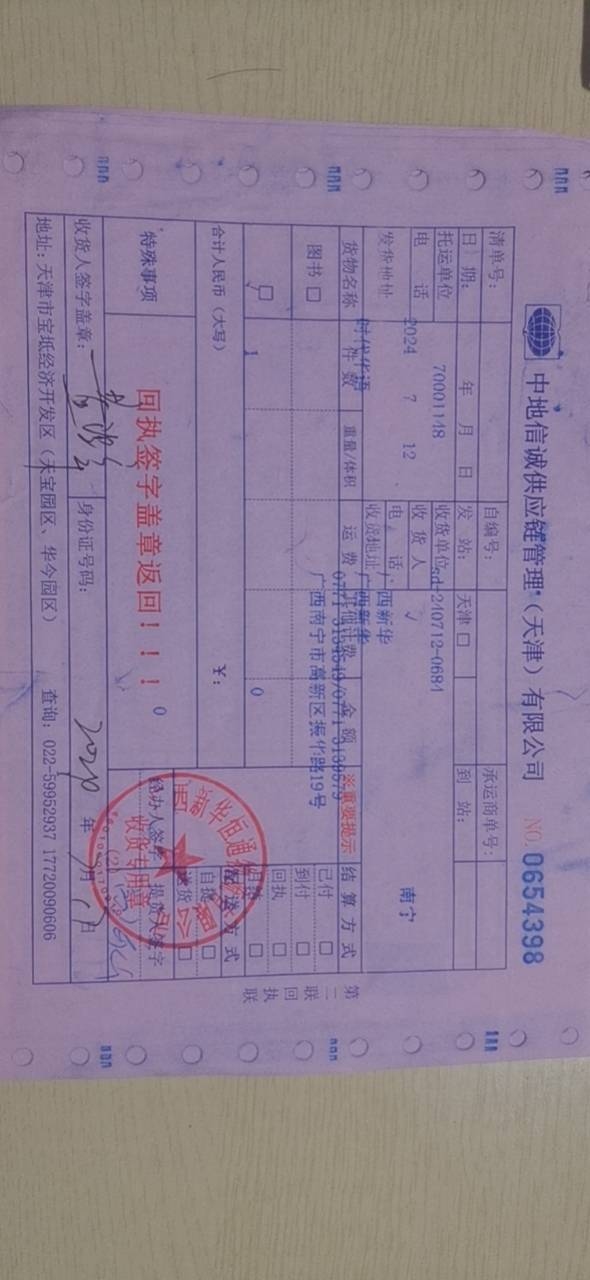 中地信诚供应链管理（天津）有限公司
NO. 0654398
清单号：
自编号：
承运商单号：
日 期： 年 月 日
发 站： 天津 □
到 站：
托运单位 70001148
收货单位 sd-240712-0684
南宁
电 话 2024 7 12
收 货 人
发货地址
电 话 广西新华
收货地址 广西新华
时代华语
货物名称 件 数 重量/体积 运 费 其他计费 金 额 ※重要提示 结 算 方 式
0771-3134549/0771-3139579
广西南宁市高新区振华路19号
图书 □
已付 □
到付 □
回执 □
□ 1 0
月结 □
合计人民币（大写） ¥：
送 方 式
自提 □
送货 □
特殊事项
回执签字盖章返回！！！
0
经办人签字 提货人签字
收货专用章
(2)
收货人签字盖章：
身份证号码：
年 月 日
地址：天津市宝坻经济开发区（天宝园区、华今园区） 查询：022-59952937 17720090606
第二联 回执联